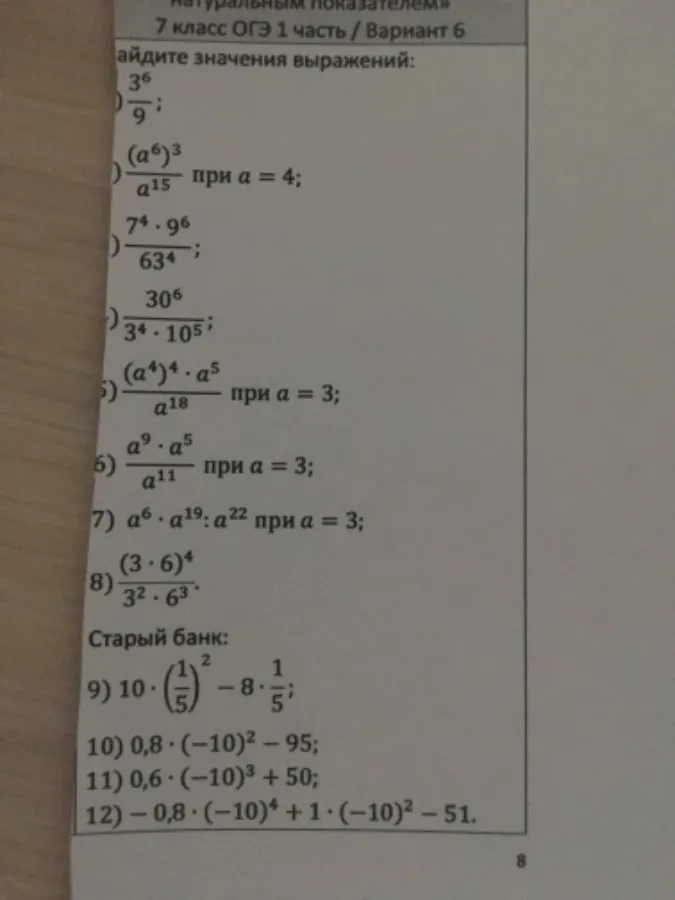 натуральным показателем»
7 класс ОГЭ 1 часть / Вариант 6
айдите значения выражений:
) 3⁶/9;
) (a⁶)³/a¹⁵ при a = 4;
) 7⁴ · 9⁶/63⁴;
) 30⁶/(3⁴ · 10⁵);
5) (a⁴)⁴ · a⁵/a¹⁸ при a = 3;
6) a⁹ · a⁵/a¹¹ при a = 3;
7) a⁶ · a¹⁹: a²² при a = 3;
8) (3 · 6)⁴/(3² · 6³).
Старый банк:
9) 10 · (1/5)² − 8 · 1/5;
10) 0,8 · (−10)² − 95;
11) 0,6 · (−10)³ + 50;
12) − 0,8 · (−10)⁴ + 1 · (−10)² − 51.
8